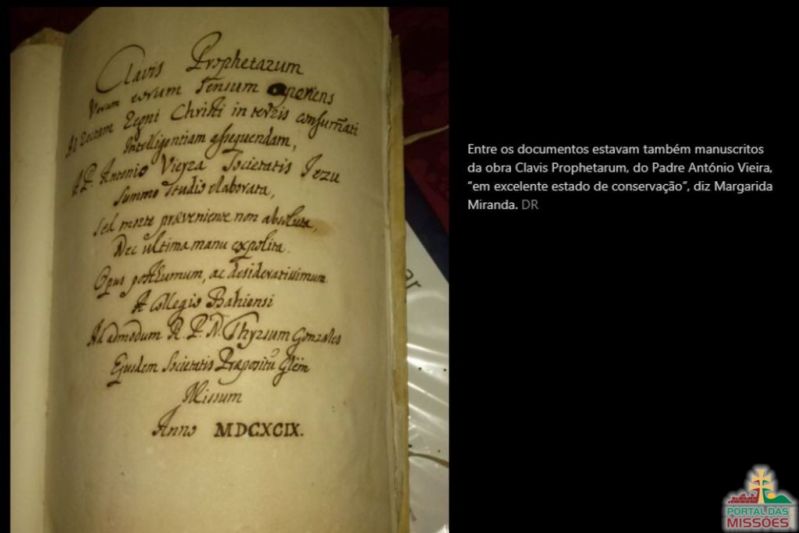 Clavis Prophetarum
Verum eorum Sensum aperiens
Ad Rectam Regni Christi in terris consum̃ati
Intelligentiam assequendam,
A P. Antonio Vieyra Societatis Jezu
Summo Studio elaborata,
Sed morte præveniente non absoluta,
Nec ultima manu expolita.
Opus posthumum, ac desideratissimum
A Collegio Bahiensi
Ad admodum R. P. N. Thyrsum Gonzales
Ejusdem Societatis Præpositũ Gl̃em
Missum
Anno MDCXCIX.
ar
Entre os documentos estavam também manuscritos
da obra Clavis Prophetarum, do Padre António Vieira,
“em excelente estado de conservação”, diz Margarida
Miranda. DR
PORTAL DAS
MISSÕES